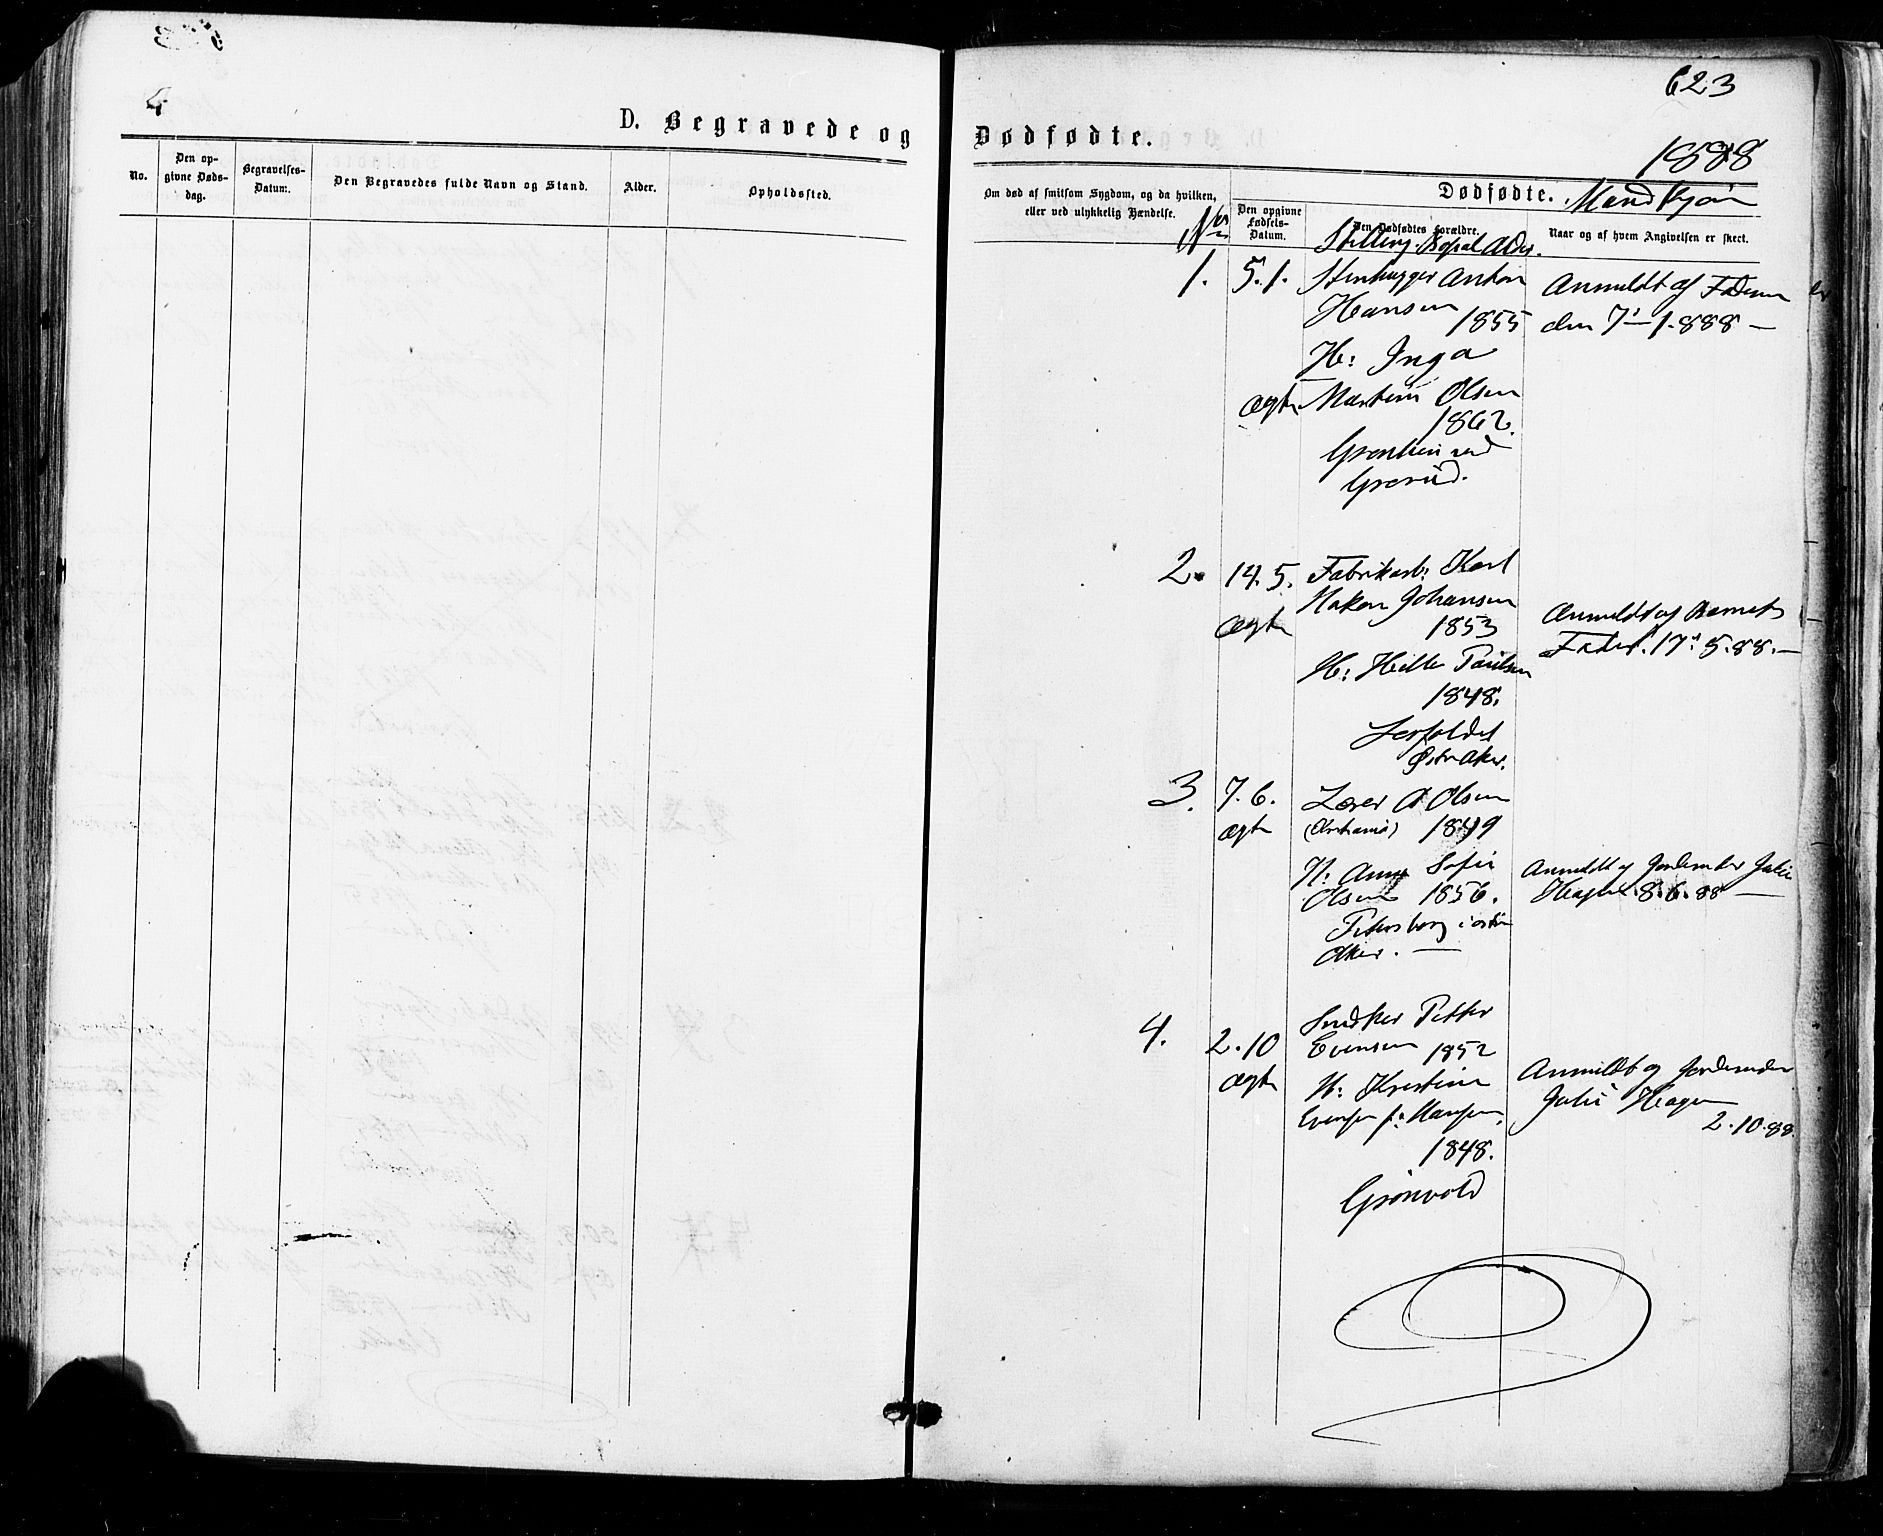 4
623
D. Begravede og Dødfødte.
1888
No.
Den op-
givne Døds-
dag.
Begravelses-
Datum.
Den Begravedes fulde Navn og Stand.
Alder.
Opholdssted.
Om død af smitsom Sygdom, og da hvilken,
eller ved ulykkelig Hændelse.
Dødfødte. Mandkjøn
No
Den opgivne
Fødsels-
Datum.
Den Dødfødtes Forældre.
Stilling. Bopæl Alder.
Naar og af hvem Angivelsen er skeet.
1. 5.1. Stenhugger Anton
Hansen 1855
H: Inga
ægte Martine Olsen
1862.
Grorud.
Anmeldt af Faderen
den 7-1.888 —
2. 14.5. Fabrikarb: Karl
Hakon Johansen
ægte 1853
H: Paulsen
1848.
Østre Aker.
Anmeldt af Barnets
Fader. 17. 5.88. —
3. 7.6. Lærer A Olsen
ægte 1849
H: Anne Sofie
Olsen 1856.
Petersborg i østre
Aker. —
Anmeldt af Jordemoder Julie
Hagen 8.6.88 —
4. 2.10 Snedker Petter
Evensen 1852
ægte H: Kristine
Evensen f: Hansen,
1848.
Grønvold
Anmeldt af Jordemoder
Julie Hagen
2.10.88.